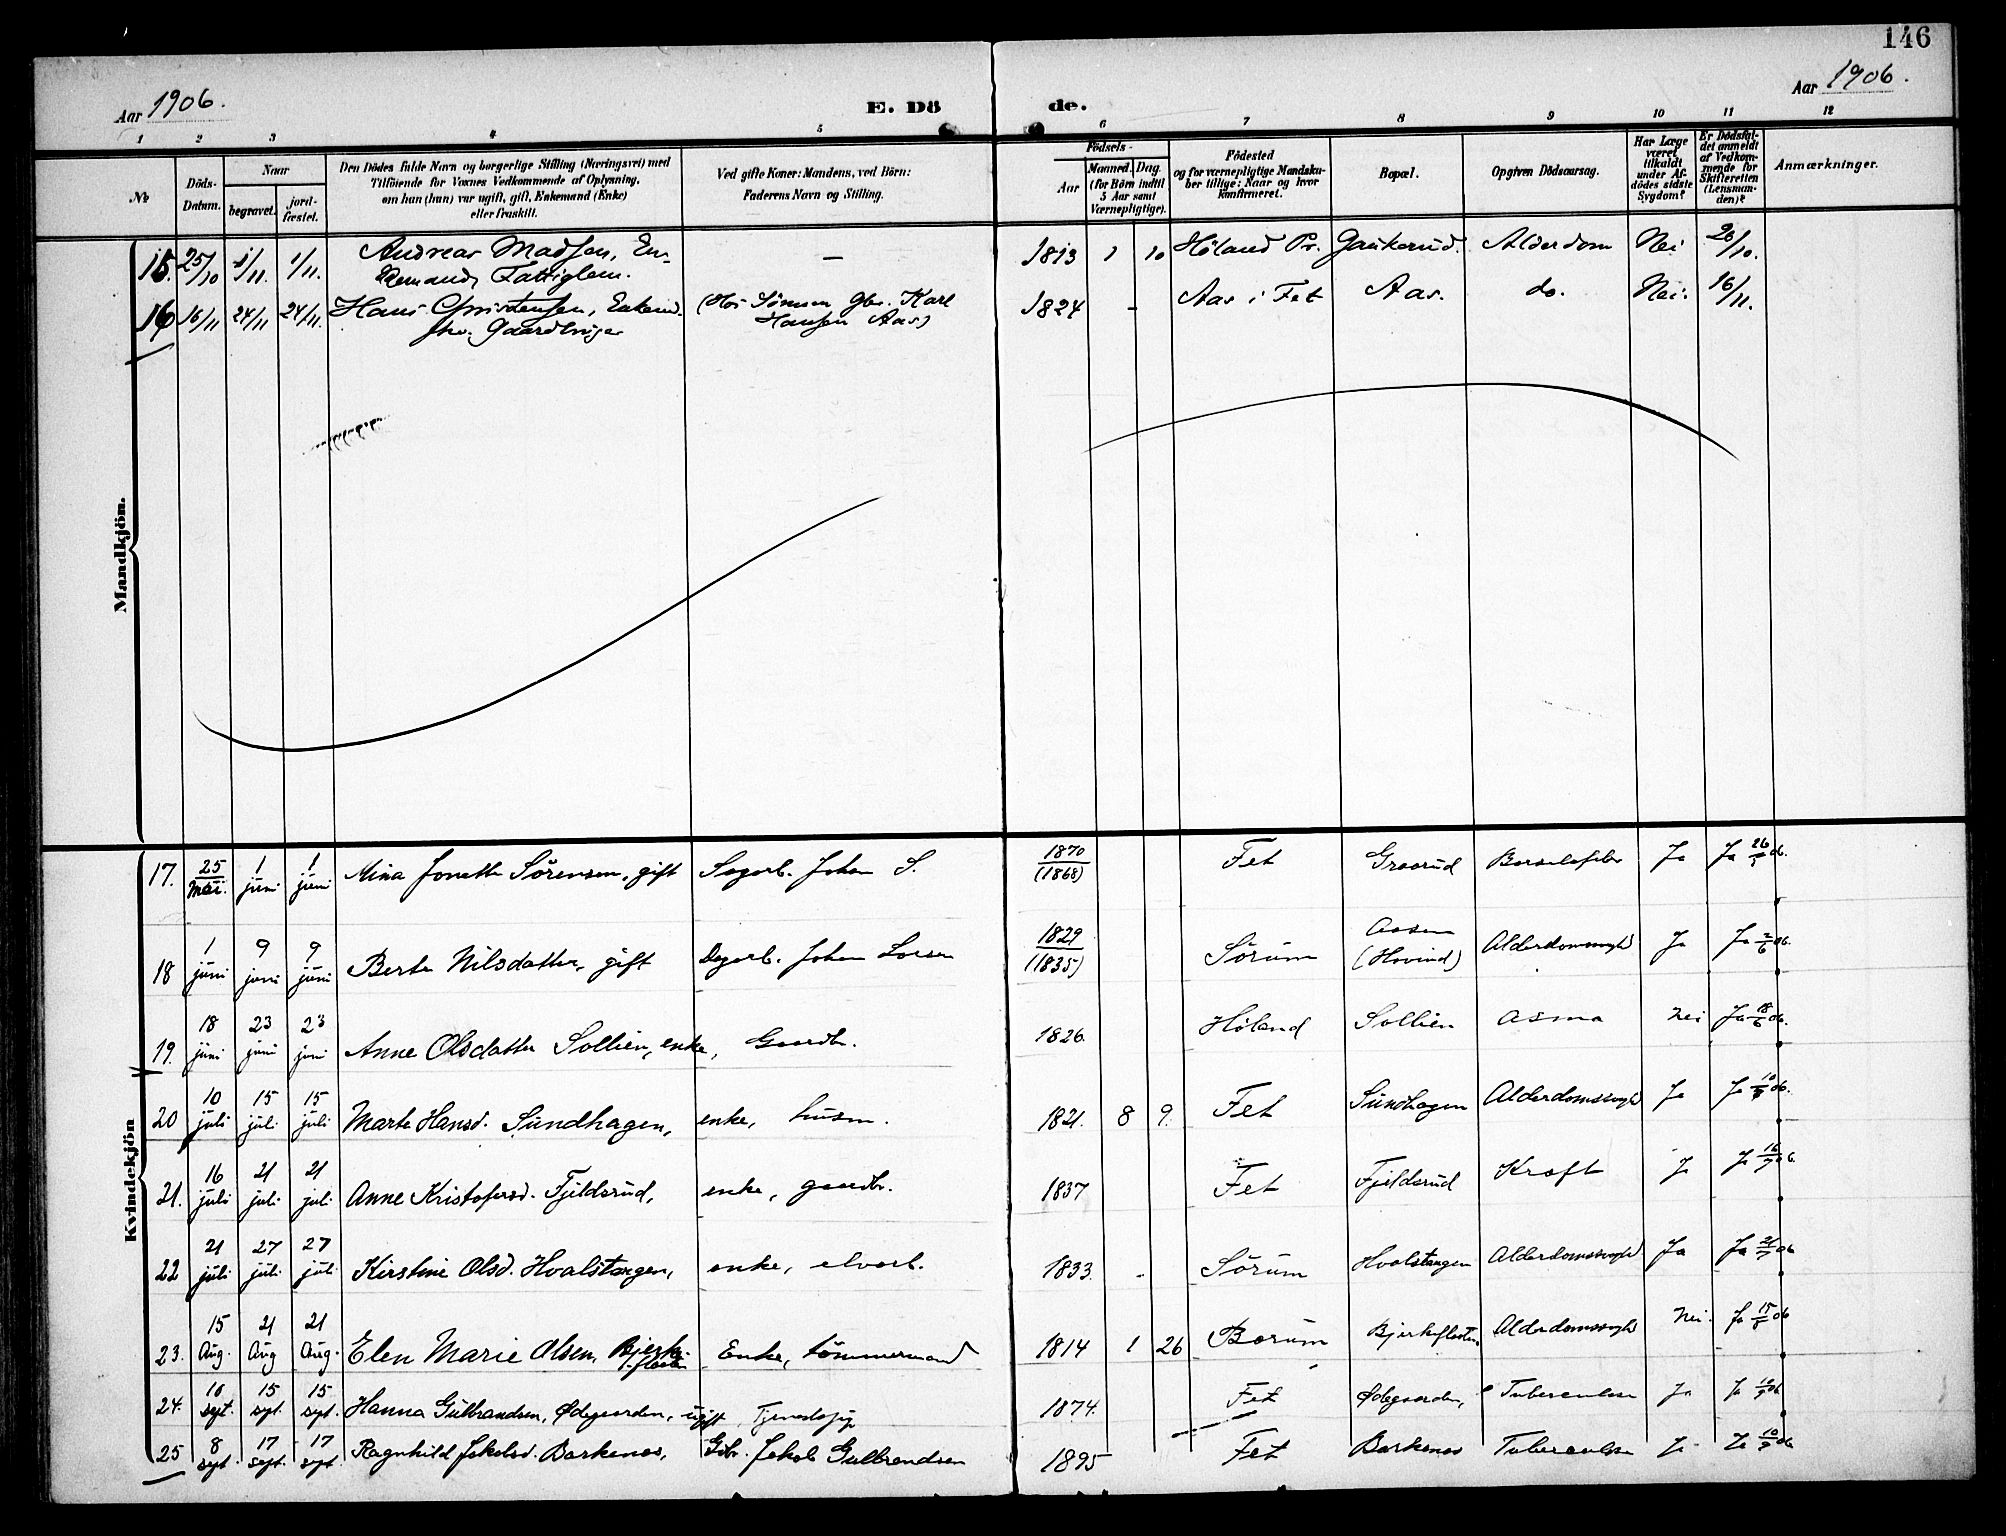 146
Aar 1906.
E. Dö de.
Aar 1906.
1 2 3 4 5 6 7 8 9 10 11 12
No
Döds-Datum.
Naar
begravet.
jord-fæstet.
Den Dödes fulde Navn og borgerlige Stilling (Næringsvei) med
Tilföiende for Voxnes Vedkommende af Oplysning,
om han (hun) var ugift, gift, Enkemand (Enke)
eller fraskilt.
Ved gifte Koner: Mandens, ved Börn:
Faderens Navn og Stilling.
Födsels-
Aar
Maaned. Dag.
(for Börn indtil
5 Aar samt
Værnepligtige).
Födested
og for værnepligtige Mandska-
ber tillige: Naar og hvor
konfirmeret.
Bopæl.
Opgiven Dödsaarsag.
Har Læge
været
tilkaldt
under Af-
dödes sidste
Sygdom?
Er Dödsfal-
det anmeldt
af Vedkom-
mende for
Skifteretten
(Lensman-
den)?
Anmærkninger.
Mandkjön.
15. 25/10 1/11. 1/11. Andreas Madsen, En-
kemand, Fattiglem. — 1813 1 10 Höland Pr. Gaukerud. Alderdom Nei 26/10.
16 16/11 24/11 24/11. Hans Christensen, Enkemd.
fhv. Gaardbruger (Hos Sönnen Gbr. Karl
Hansen Aas) 1824 - Aas i Fet Aas. do. Nei. 16/11.
Kvindekjön
17. 25 Mai. 1 juni 1 juni Mina Jonette Sörensen, gift Sagarb. Johan S. 1870 (1868) Fet Graarud Barselsfeber Ja Ja 26/5 06.
18 1 juni 9 juni 9 juni Berte Nilsdatter, gift Dagarb. Johan Larsen 1829 (1835) Sörum Aasen (Hovind) Alderdomssvaghd Ja Ja 2/6 06.
19. 18 juni 23 juni 23 juni Anne Olsdatter Sollien, enke, Gaardbr. 1826. Höland Sollien Asma Nei Ja 18/6 06.
20 10 juli 15 juli 15 juli Marte Hansd. Sundhagen, enke, husm. 1821. 8 9. Fet Sundhagen Alderdomssvaghd Ja Ja 10/7 06.
21. 16 juli 21 juli 21 juli Anne Kristofersd. Fjeldsrud, enke, gaardbr. 1837 Fet Fjeldsrud Kræft Ja Ja 16/7 06.
22 21 juli 27 juli 27 juli Kirstine Olsd. Hvalstangen, enke, elvarb. 1833. - Sörum Hvalstangen Alderdomssvaghd Ja Ja 21/7 06
23. 15 Aug. 21 Aug 21 Aug. Elen Marie Olsen, Bjerke-
flaten Enke, tömmermand 1814 1 26 Bærum Bjerkeflaten Alderdomssvaghd Nei. Ja 15/8 06
24. 10 sept. 15 sept. 15 sept. Hanna Gulbrandsen, Ödegaarden, ugift, Tjenestepige 1874. Fet Ödegaarden, Tuberculose Ja Ja 10/9 06
25 8 sept. 17 sept. 17 sept. Ragnhild Jakobsd. Barkenæs, Gdbr. Jakob Gulbrandsen 1895 Fet Barkenæs Tuberculose Ja Ja 10/9 06